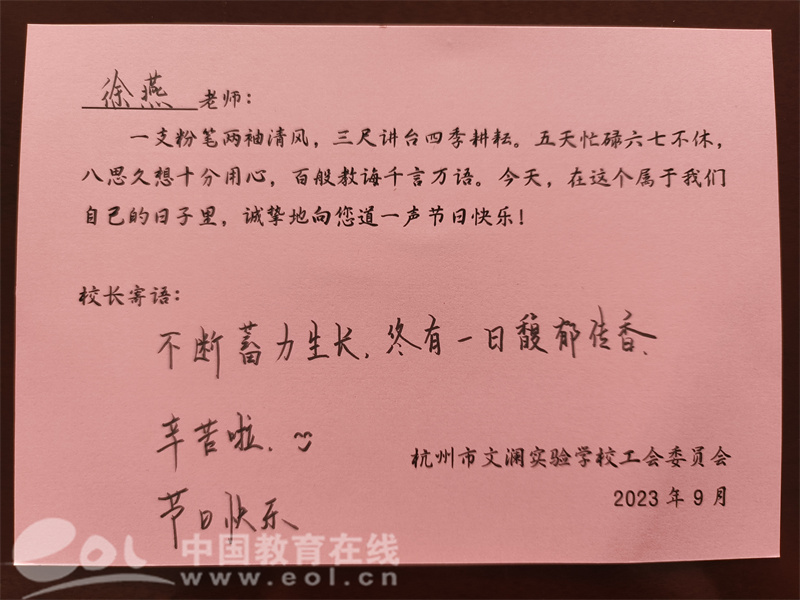 徐燕 老师：
一支粉笔两袖清风，三尺讲台四季耕耘。五天忙碌六七不休，
八思久想十分用心，百般教诲千言万语。今天，在这个属于我们
自己的日子里，诚挚地向您道一声节日快乐！
校长寄语：
不断蓄力生长，终有一日馥郁传香、
辛苦啦、
节日快乐
杭州市文澜实验学校工会委员会
2023年9月
eol 中国教育在线
www.eol.cn